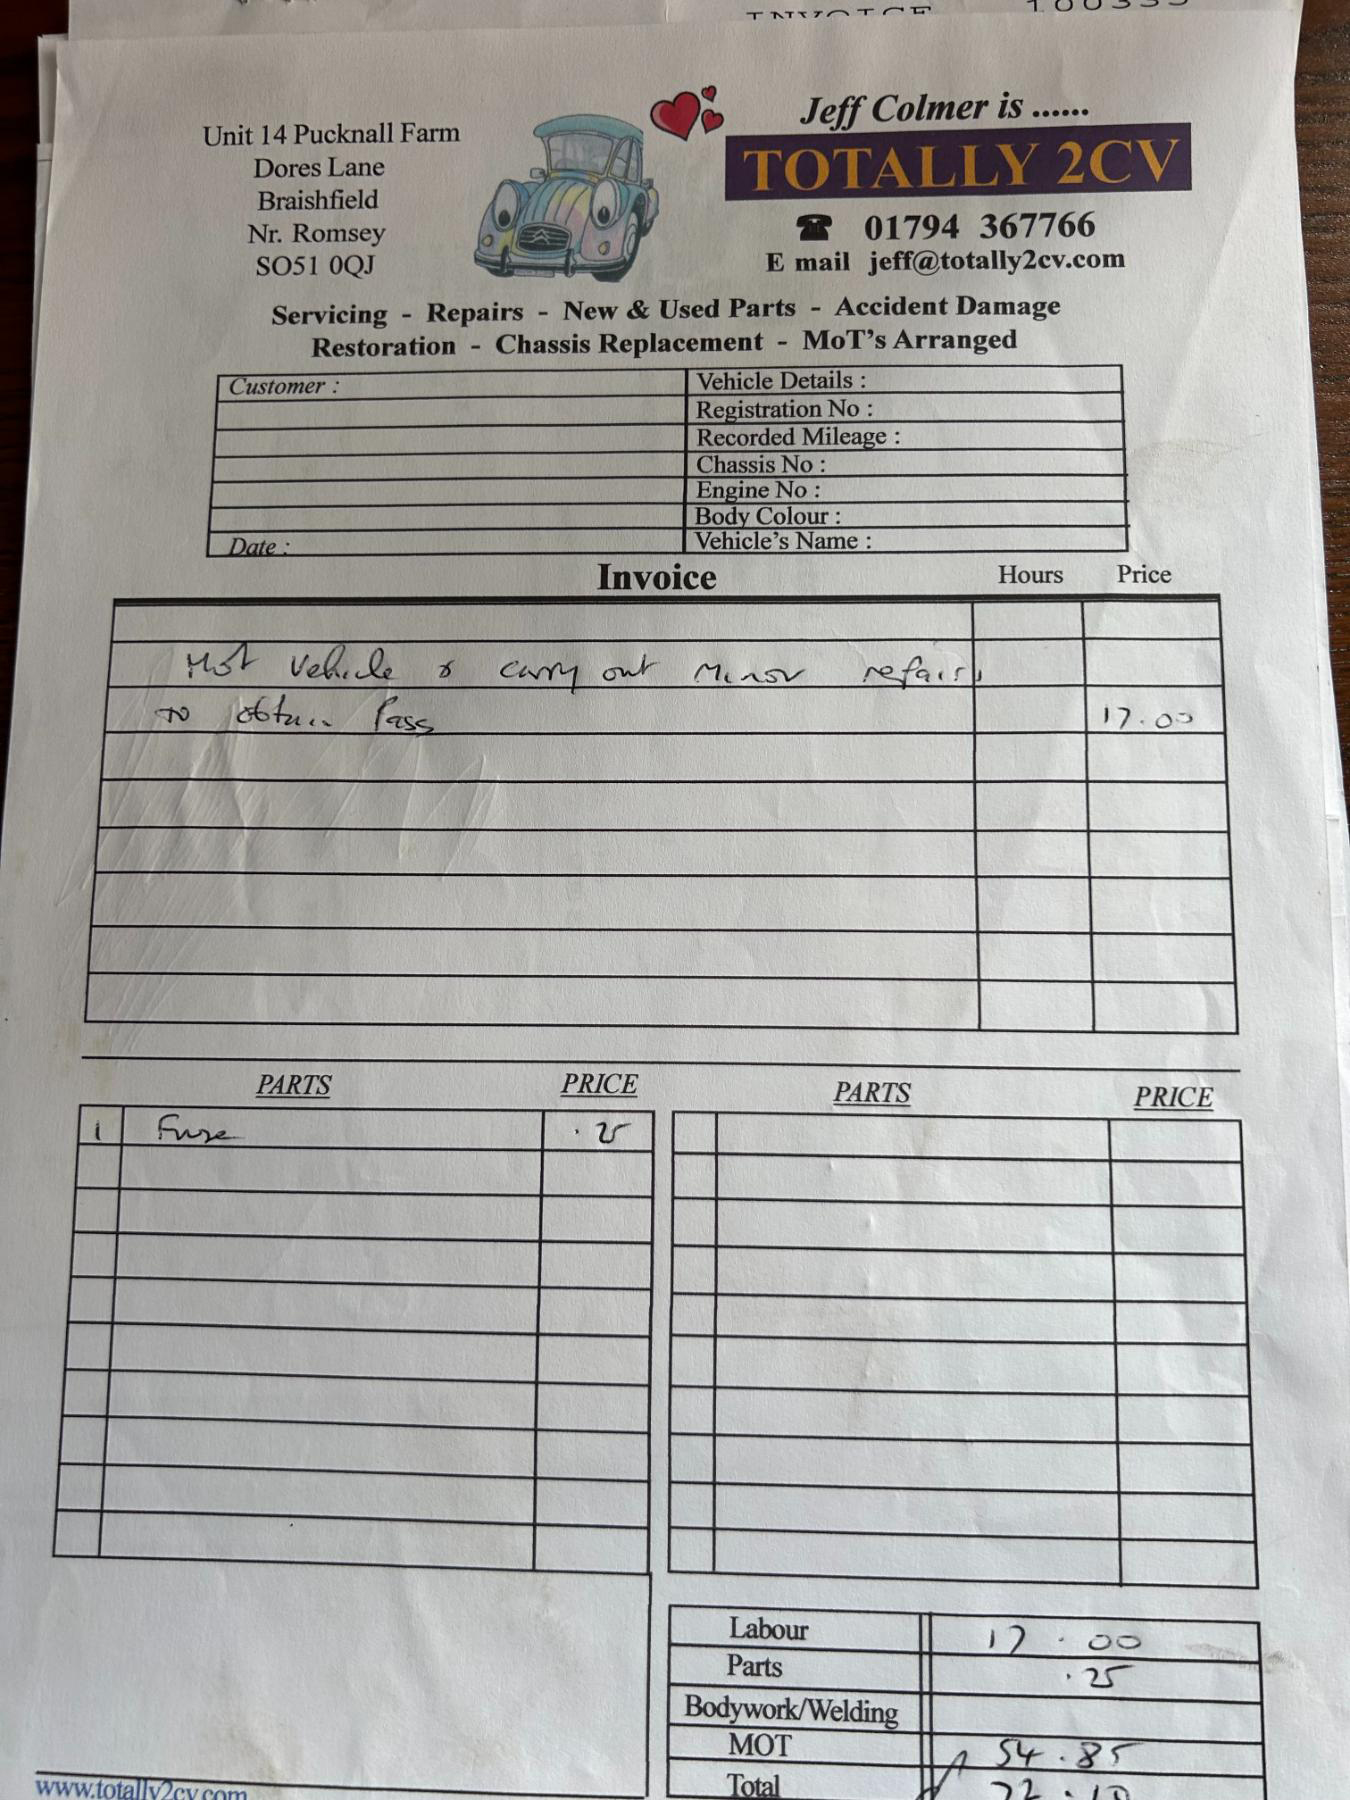 INVOICE 100335
Jeff Colmer is ......
TOTALLY 2CV
☎ 01794 367766
E mail jeff@totally2cv.com
Unit 14 Pucknall Farm
Dores Lane
Braishfield
Nr. Romsey
SO51 0QJ
Servicing - Repairs - New & Used Parts - Accident Damage
Restoration - Chassis Replacement - MoT's Arranged
Customer : Vehicle Details :
Registration No :
Recorded Mileage :
Chassis No :
Engine No :
Body Colour :
Date : Vehicle's Name :
Invoice Hours Price
Mot Vehicle & carry out Minor repairs
to obtain Pass 17.00
PARTS PRICE PARTS PRICE
1 Fuse .25
Labour 17.00
Parts .25
Bodywork/Welding
MOT 54.85
Total 72.10
www.totally2cv.com